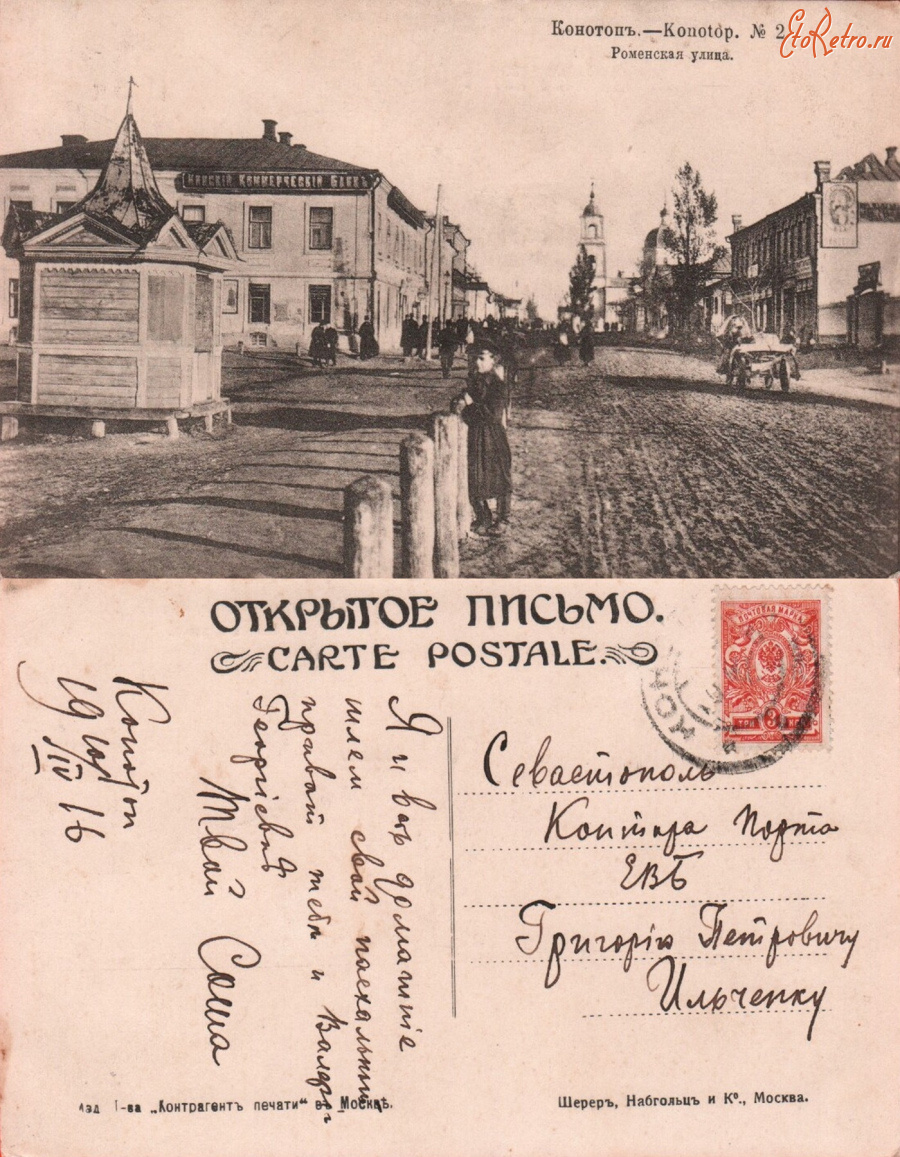 Конотопъ.—Konotop. № 2
Роменская улица.
EtoRetro.ru
КОММЕРЧЕСКІЙ БАНКЪ
ОТКРЫТОЕ ПИСЬМО.
CARTE POSTALE.
ПОЧТОВАЯ МАРКА
3
ТРИ КОП
Конотоп
19 IV 16
Я и всѣ домашніе
шлем свой пасхальный
привѣт тебѣ и
Георгіевнѣ
Твой Саша
Севастополь
Контора Порта
ЕВБ
Григорію Петровичу
Ильченку
Изд. Т-ва „Контрагентъ печати" въ Москвѣ.
Шереръ, Набгольцъ и Ко., Москва.